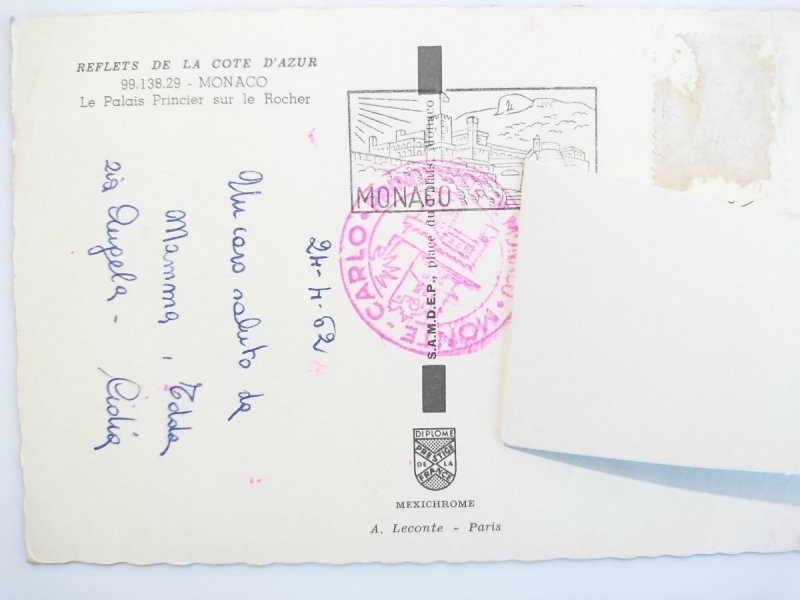 REFLETS DE LA COTE D'AZUR
99.138.29 - MONACO
Le Palais Princier sur le Rocher
24-4-62
Un caro saluto da
Mamma, Edda
zia Angela - Lidia
MONACO
MONTE-CARLO
S.A.M.D.E.P., place du Palais, Monaco
DIPLOME
PRESTIGE
DE LA
FRANCE
MEXICHROME
A. Leconte - Paris